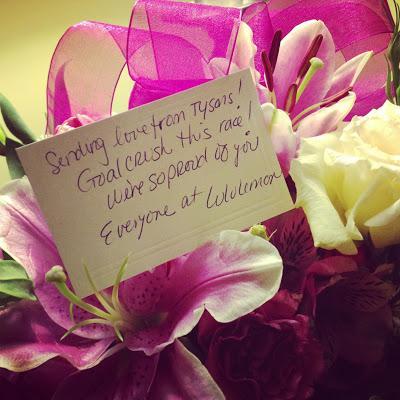 Sending love from Tysons!
Goal crush this race!
We're so proud of you
Everyone at Lululemon